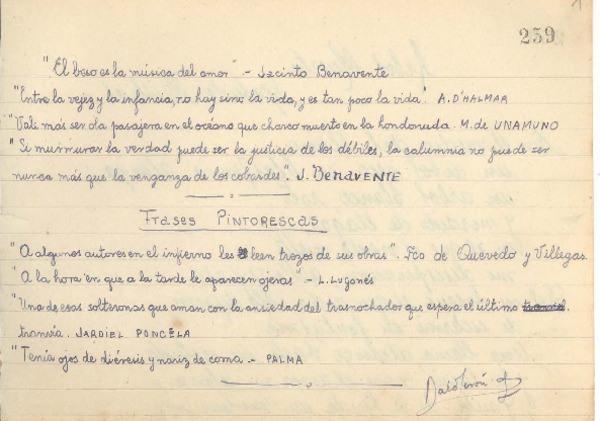 259
"El beso es la música del amor" - Jacinto Benavente
"Entre la vejez y la infancia, no hay sino la vida, y es tan poco la vida". A. D'HALMAR
"Vale más ser ola pasajera en el océano que charco muerto en la hondonada. M. de UNAMUNO
"Si murmurar la verdad puede ser la justicia de los débiles, la calumnia no puede ser
nunca más que la venganza de los cobardes". J. BENAVENTE
FRASES PINTORESCAS
"A algunos autores en el infierno les leen trozos de sus obras". Fco de Quevedo y Villegas.
"A la hora en que a la tarde le aparecen ojeras" - L. Lugonés
"Una de esas solteronas que aman con la ansiedad del trasnochador que espera el último
tranvía. JARDIEL PONCELA
"Tenía ojos de diéresis y nariz de coma. - PALMA